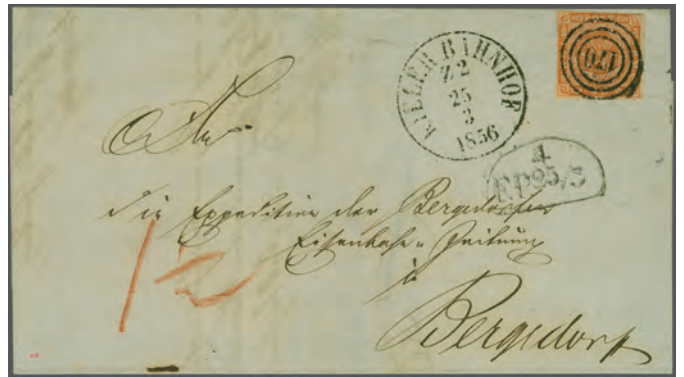 KIELER BAHNHOF
Z 2
25
3
1856
170
4
F.P. 25/3
An
die Expedition der Bergedorfer
Eisenbahn-Zeitung
in
Bergedorf
1½